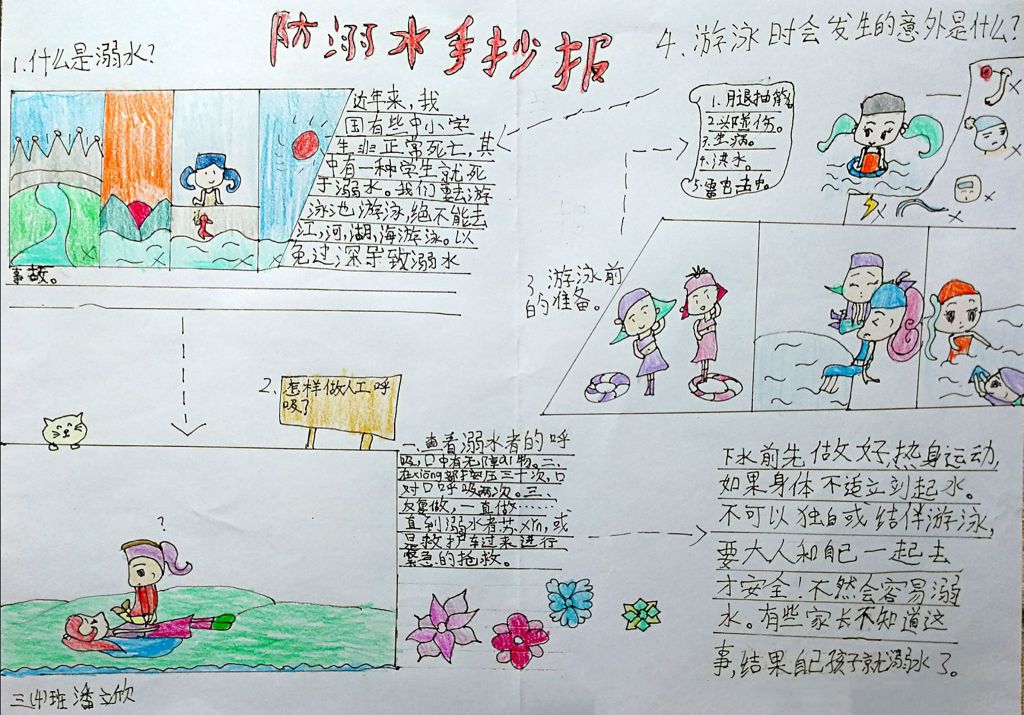 防溺水手抄报
1.什么是溺水?
近年来,我
国有些中小学
生非正常死亡,其
中有一种学生就死
于溺水。我们要去游
泳池游泳,绝不能去
江,河,湖,海游泳。以
免过深导致溺水
事故。
2.怎样做人工呼
吸?
一.查看溺水者的呼
吸,口中有无障ai物。二、
在xiōng部按压三十次,口
对口呼吸两次。三、
反复做,一直做……
直到溺水者苏xǐn,或
是救护车过来进行
紧急的抢救。
3.游泳前
的准备。
下水前先做好热身运动,
如果身体不适立刻起水。
不可以独自或结伴游泳,
要大人和自己一起去
才安全!不然会容易溺
水。有些家长不知道这
事,结果自己孩子就溺水了。
4.游泳时会发生的意外是什么?
1.月退抽筋
2.头碰伤。
3.生病。
4.决水。
5.雷电击中。
?
三(4)班 潘文欣